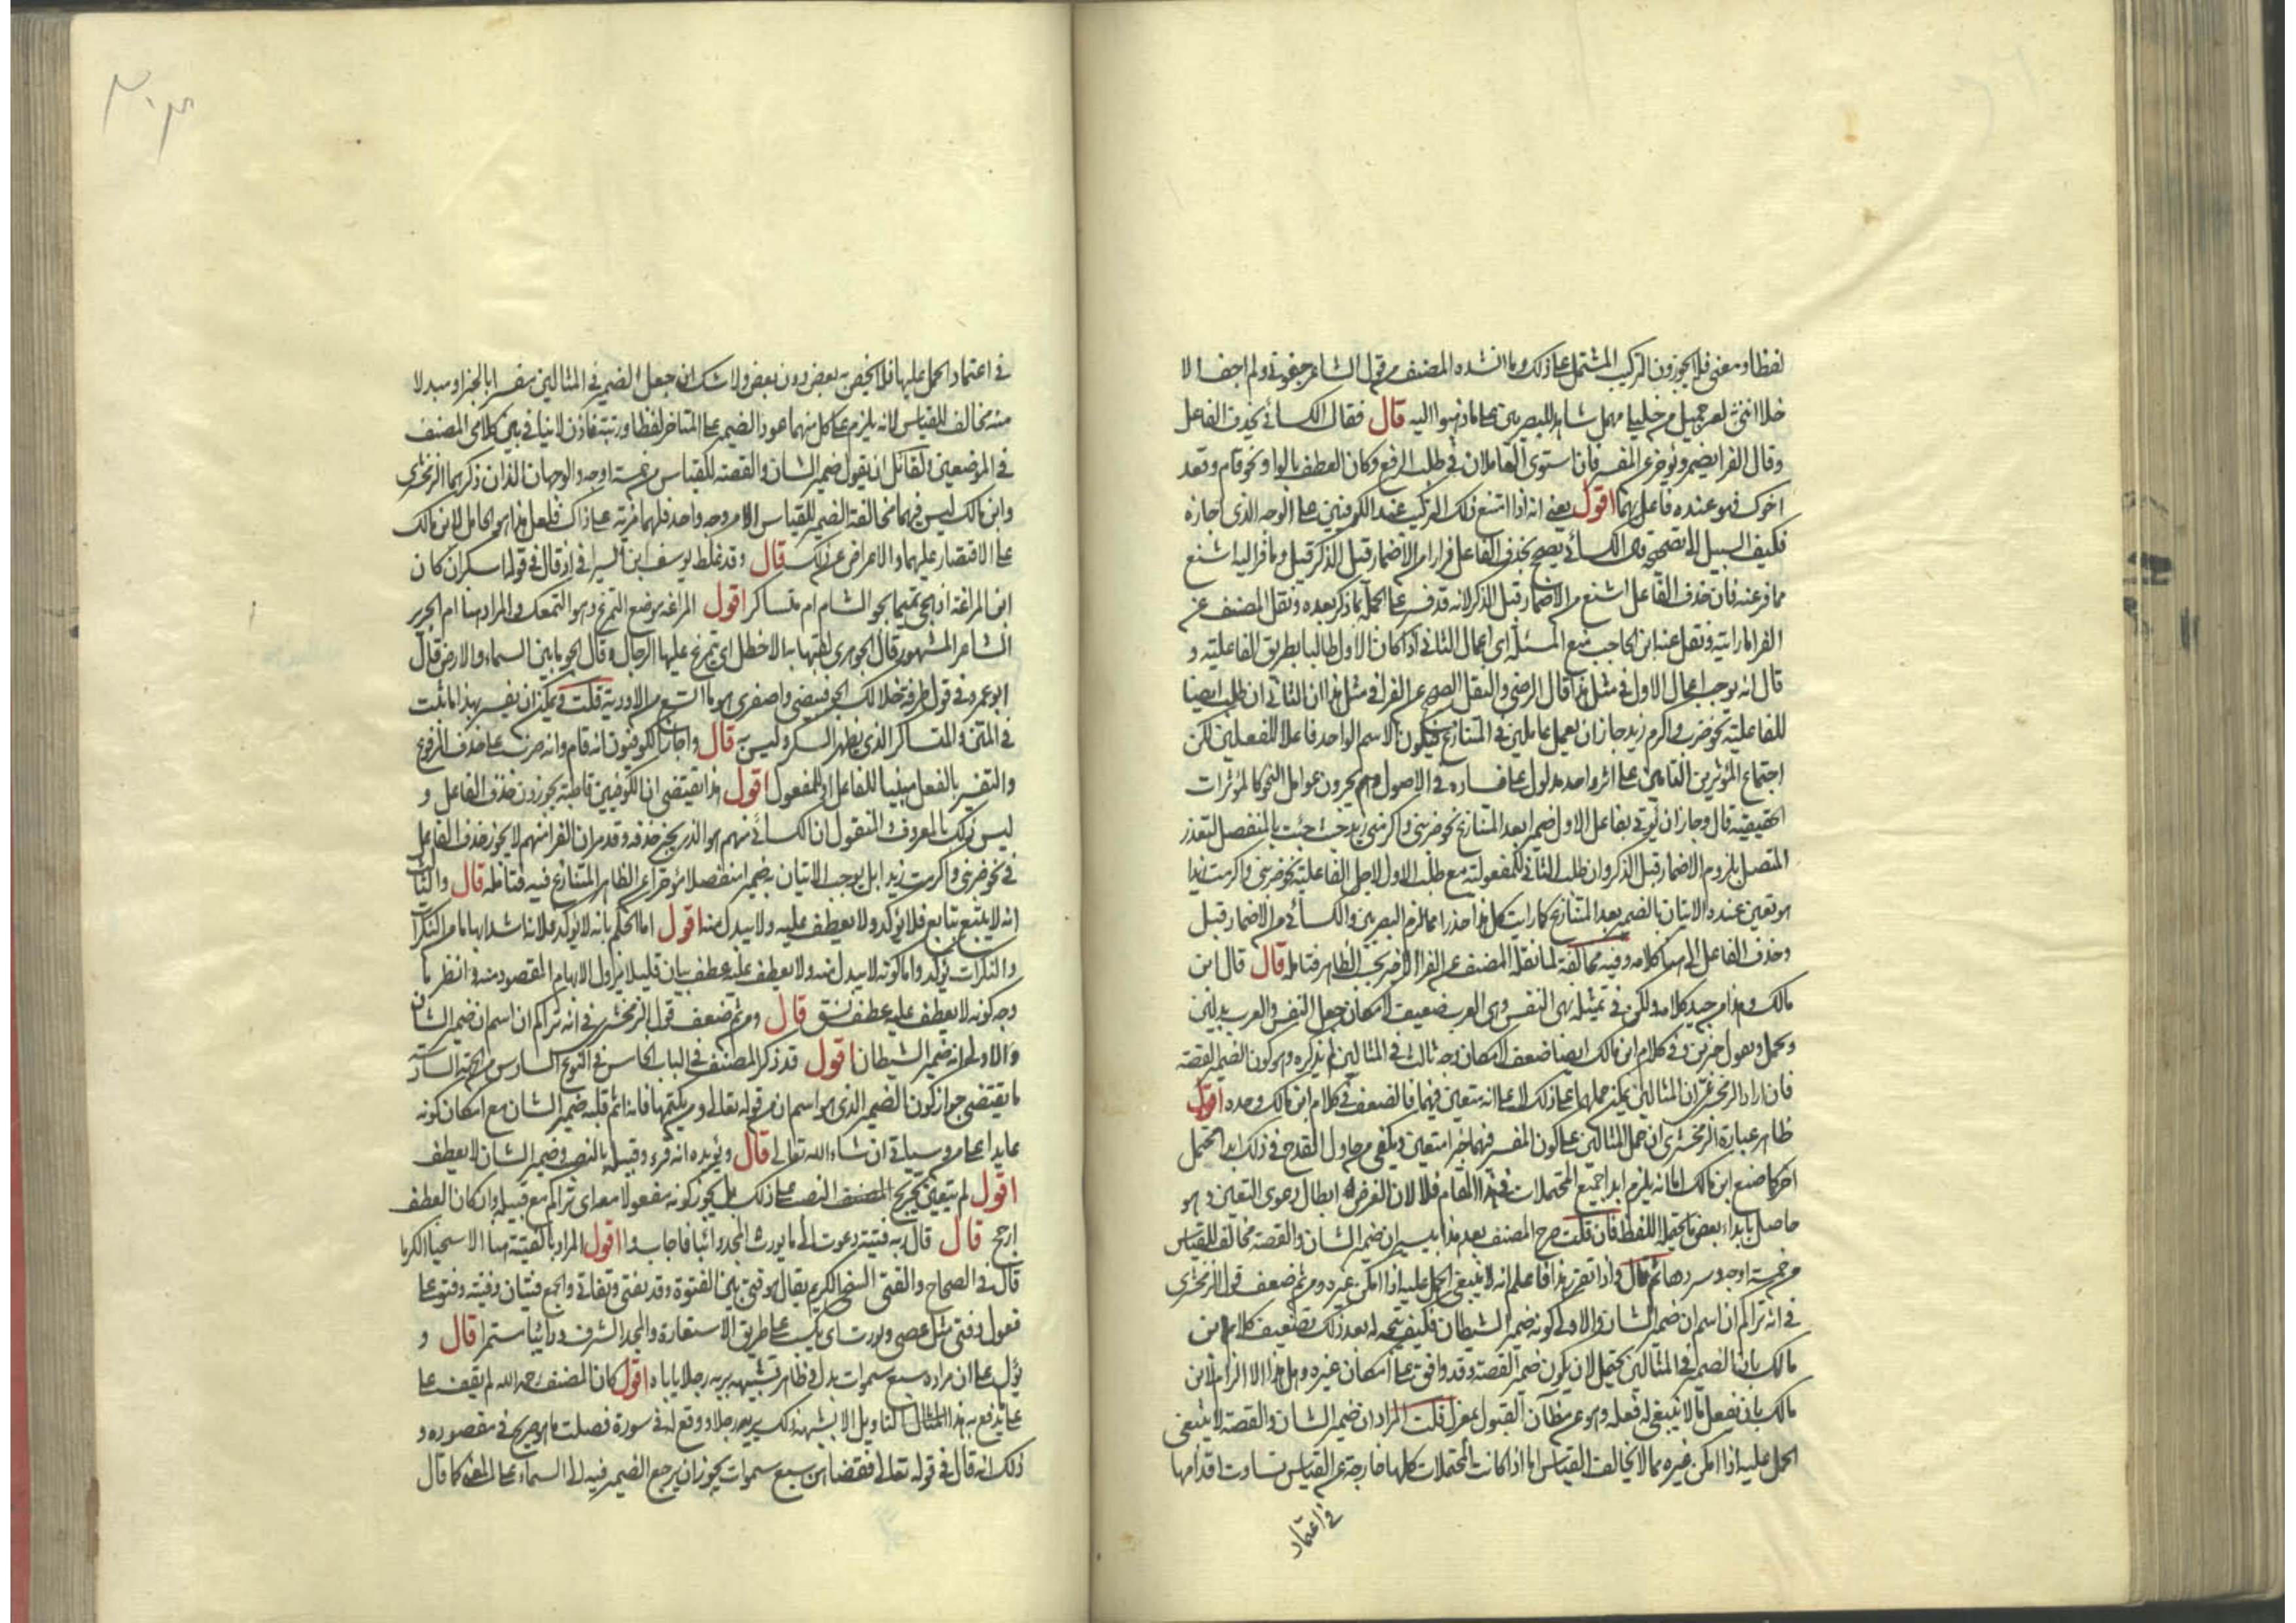 لفظا ومعنى فلا يجوزون التركيب المشتمل على ذلك وما انشده المصنف من قول الشاعر جفوني ولم اجف الا
خلا انني لغير جميل من خليلي مهمل شاهد للبصريين على ما ذهبوا اليه قال فقال الكسائي يحذف الفاعل
وقال الفرا يضمر ويؤخر عن المفسر فان استوى العاملان في طلب الرفع وكان العطف بالواو نحو قام وقعد
اخوك فهو عنده فاعل بهما اقول يعني انه اذا امتنع ذلك التركيب عند الكوفيين على الوجه الذي اجازه
فكيف السبيل الى تصحيحه قال الكسائي يصح بحذف الفاعل فرارا من الاضمار قبل الذكر قيل وما فر اليه اشنع
مما فر عنه فان حذف الفاعل اشنع من الاضمار قبل الذكر لانه قد فسر على الجملة بما ذكر بعده ونقل المصنف عن
الفرا ما رايته ونقل عنه ابن الحاجب منع المسئلة اي اعمال الثاني اذا كان الاول طالبا بطريق الفاعلية و
قال انه يوجب اعمال الاول في مثل هذا قال الرضي والنقل الصحيح عن الفرا في مثل هذا ان الثاني ان طلب ايضا
للفاعلية نحو ضرب واكرم زيد جاز ان يعمل عاملين في المتنازع فيكون الاسم الواحد فاعلا للفعلين لكن
اجتماع المؤثرين التامين على اثر واحد مدلول على فساده في الاصول وهم يجرون عوامل النحو كالمؤثرات
الحقيقية قال وجاز ان يؤتى بفاعل الاول ضميرا بعد المتنازع نحو ضربني واكرمني زيد هو جئت بالمنفصل لتعذر
المتصل بلزوم الاضمار قبل الذكر وان طلب الثاني للمفعولية مع طلب الاول لاجل الفاعلية نحو ضربني واكرمت زيدا
هو تعين عنده الاتيان بالضمير بعد المتنازع كما رايت كل هذا حذرا مما لزم البصريين والكسائي من الاضمار قبل
وحذف الفاعل الى هنا كلامه وفيه مخالفة لما نقله المصنف عن الفرا بحسب الظاهر فتامله قال قال ابن
مالك وهذا من جيد كلامه ولكن في تمثيله بهي النفس وهي العرب ضعيف لامكان جعل النفس والعرب بدلين
وتحمل وتقول خبرين وفي كلام ابن مالك ايضا ضعف لامكان وجه ثالث في المثالين لم يذكره وهو كون الضمير للقصة
فان اراد الزمخشري ان المثالين يمكن حملهما على ذلك لا على انه متعين فيهما فالضعف في كلام ابن مالك وحده اقول
ظاهر عبارة الزمخشري ان حمل المثالين على كون المفسر فيهما خبرا متعين ويكفي من حاول القدح في ذلك ابدا محتمل
اخر كما صنع ابن مالك اما انه يلزم ابدا جميع المحتملات في هذا المقام فلا لان الغرض ابطال دعوى التعين وهو
حاصل بابداء بعض ما يحتمله اللفظ فان قلت صرح المصنف بعد هذا بيسير ان ضمير الشان والقصة مخالف للقياس
من خمسة اوجه وسردها ثم قال واذا تقرر هذا فاعلم انه لا ينبغي الحمل عليه اذا امكن غيره ومن ثم ضعف قول الزمخشري
في انه تراكم ان اسم ان ضمير الشان والاولى كونه ضمير الشيطان فكيف يتجه له بعد ذلك تضعيف كلام ابن
مالك بان الضمير في المثالين يحتمل لان يكون ضمير القصة وقد وافق على امكان غيره وهل هذا الا الزام لابن
مالك بان يفعل ما لا ينبغي له فعله وهو عن مظان القبول بمعزل قلت المراد ان ضمير الشان والقصة لا ينبغي
الحمل عليه اذا امكن غيره مما لا يخالف القياس اما اذا كانت المحتملات كلها خارجة عن القياس تساوت اقدامها
في اعتماد
٣٠٣
في اعتماد الحمل عليها فلا يختص به بعض دون بعض ولا شك ان جعل الضمير في المثالين مفسرا بالخبر او مبدلا
منه مخالف للقياس لانه يلزم على كل منهما عود الضمير على المتاخر لفظا ورتبة فاذن لا تنافي بين كلامي المصنف
في الموضعين ولقائل ان يقول ضمير الشان والقصة للقياس من خمسة اوجه والوجهان اللذان ذكرهما الزمخشري
وابن مالك ليس فيهما مخالفة الضمير للقياس الا من وجه واحد فلهما مزية على ذاك فلعل هذا هو الحامل لابن مالك
على الاقتصار عليهما والاعراض عن ذلك قال وقد غلط يوسف ابن السيرافي اذ قال في قوله اسكران كان
ابن المراغة اذ هجى تميما بجو الشام ام متساكر اقول المراغة موضع التمرغ وهو التمعك والمراد هنا ام الجرير
الشاعر المشهور قال الجوهري لقبها به الاخطل اي تمرغ عليها الرجال وقال الجو ما بين السماء والارض قال
ابو عمرو في قول طرفة خلا لك الجو فبيضي واصفري هو ما اتسع من الاودية قلت فيمكن ان يفسر بهذا ما ثبت
في المتن والمتساكر الذي يظهر السكر وليس به قال واجاز الكوفيون انه قام وانه ضرب على حذف المرفوع
والتفسير بالفعل مبنيا للفاعل او للمفعول اقول هذا يقتضي ان الكوفيين قاطبة يجوزون حذف الفاعل و
ليس ذلك بالمعروف والمنقول ان الكسائي منهم هو الذي يجيز حذفه وقد مر ان الفرا منهم لا يجوز حذف الفاعل
في نحو ضربني واكرمت زيدا بل يوجب الاتيان بضمير منفصلا مؤخرا عن الظاهر المتنازع فيه فتامله قال والثالث
انه لا يتبع بتابع فلا يؤكد ولا يعطف عليه ولا يبدل منه اقول اما الحكم بانه لا يؤكد فلانه اشد ابهاما من النكرات
والنكرات لا تؤكد واما كونه لا يبدل منه ولا يعطف عليه عطف بيان فليلا يزول الابهام المقصود منه وانظر ما
وجه كونه لا يعطف عليه عطف نسق قال ومن ثم ضعف قول الزمخشري في انه تراكم ان اسم ان ضمير الشان
والاولى انه ضمير الشيطان اقول قد ذكر المصنف في الباب الخامس في النوع السادس من الجهة السادسة
ما يقتضي جواز كون الضمير الذي هو اسم ان من قوله تعالى ومن يكتمها فانه اثم قلبه ضمير الشان مع امكان كونه
عايدا على من وسياتي ان شاء الله تعالى قال ويؤيده انه قرء وقبيله بالنصب وضمير الشان لا يعطف
اقول لم يتعين تخريج النصب على ذلك بل يجوز كونه مفعولا معه اي تراكم مع قبيله وان كان العطف
ارجح قال قال ربه فتية دعوت الى ما يورث المجد دائبا فاجابوا اقول المراد بالفتية هنا الاسخيا الكرما
قال في الصحاح والفتى السخي الكريم يقال هو فتى بين الفتوة وقد تفتى وتفاتى والجمع فتيان وفتية وفتو على
فعول وفتي مثل عصي ويورث اي يكسب على طريق الاستعارة والمجد الشرف ودائبا مستمرا قال و
يؤول على ان مراده سبع سموات بدل وظاهر تشبيهه بربه رجلا ياباه اقول كان المصنف رحمه الله لم يقف على
ما يدفع به هذا التاويل الا تشبيهه ذلك بربه رجلا ووقع له في سورة فصلت ما هو صريح في مقصوده و
ذلك انه قال في قوله تعالى فقضاهن سبع سموات يجوز ان يرجع الضمير فيه الى السماء على المعنى كما قال